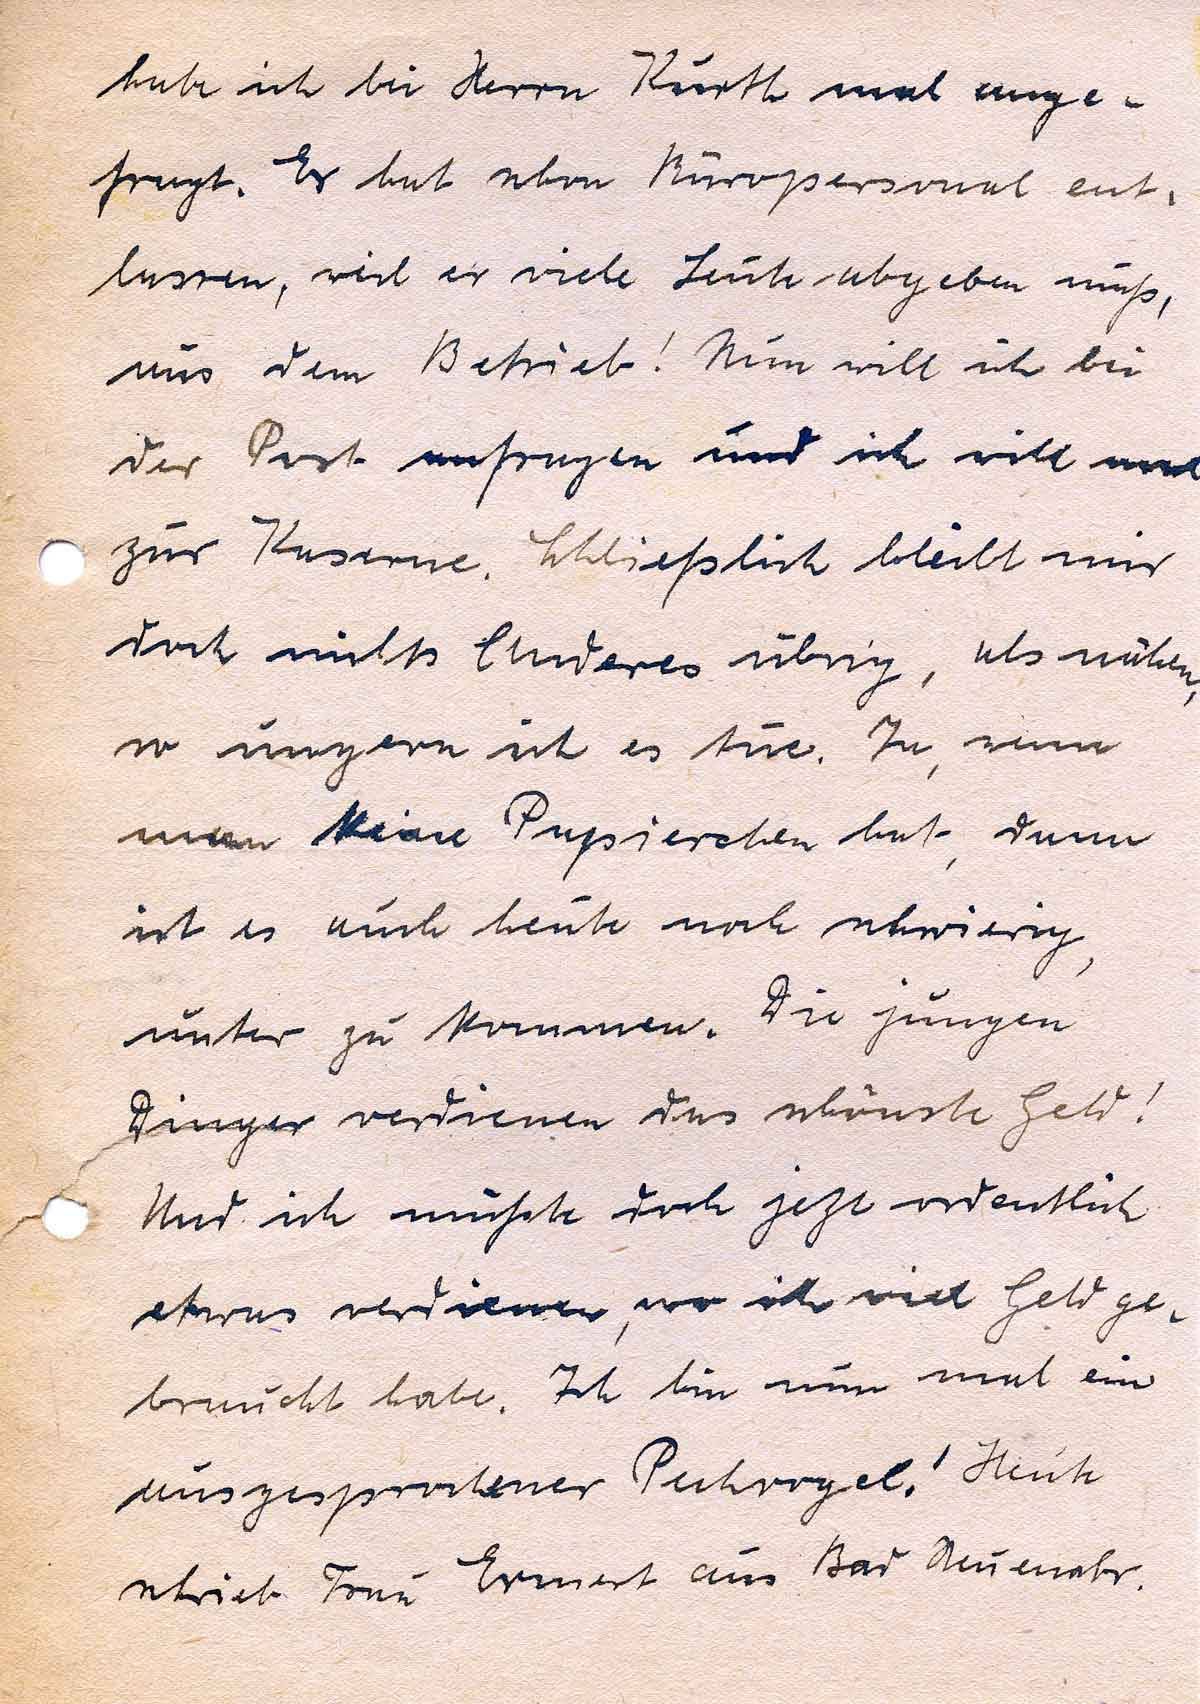 habe ich bei Herrn Kürth mal ange-
fragt. Er hat schon Büropersonal ent-
lassen, weil er viele Leute abgeben muß,
aus dem Betrieb! Nun will ich bei
der Post anfragen und ich will mal
zur Kaserne. Schließlich bleibt mir
doch nichts Anderes übrig, als nähen,
so ungern ich es tue. Ja, wenn
man keine Papierchen hat, dann
ist es auch heute noch schwierig,
unter zu kommen. Die jungen
Dinger verdienen das schönste Geld!
Und ich müßte doch jetzt ordentlich
etwas verdienen, wo ich viel Geld ge-
braucht habe. Ich bin nun mal ein
ausgesprochener Pechvogel! Heute
schrieb Frau Ermert aus Bad Neuenahr.